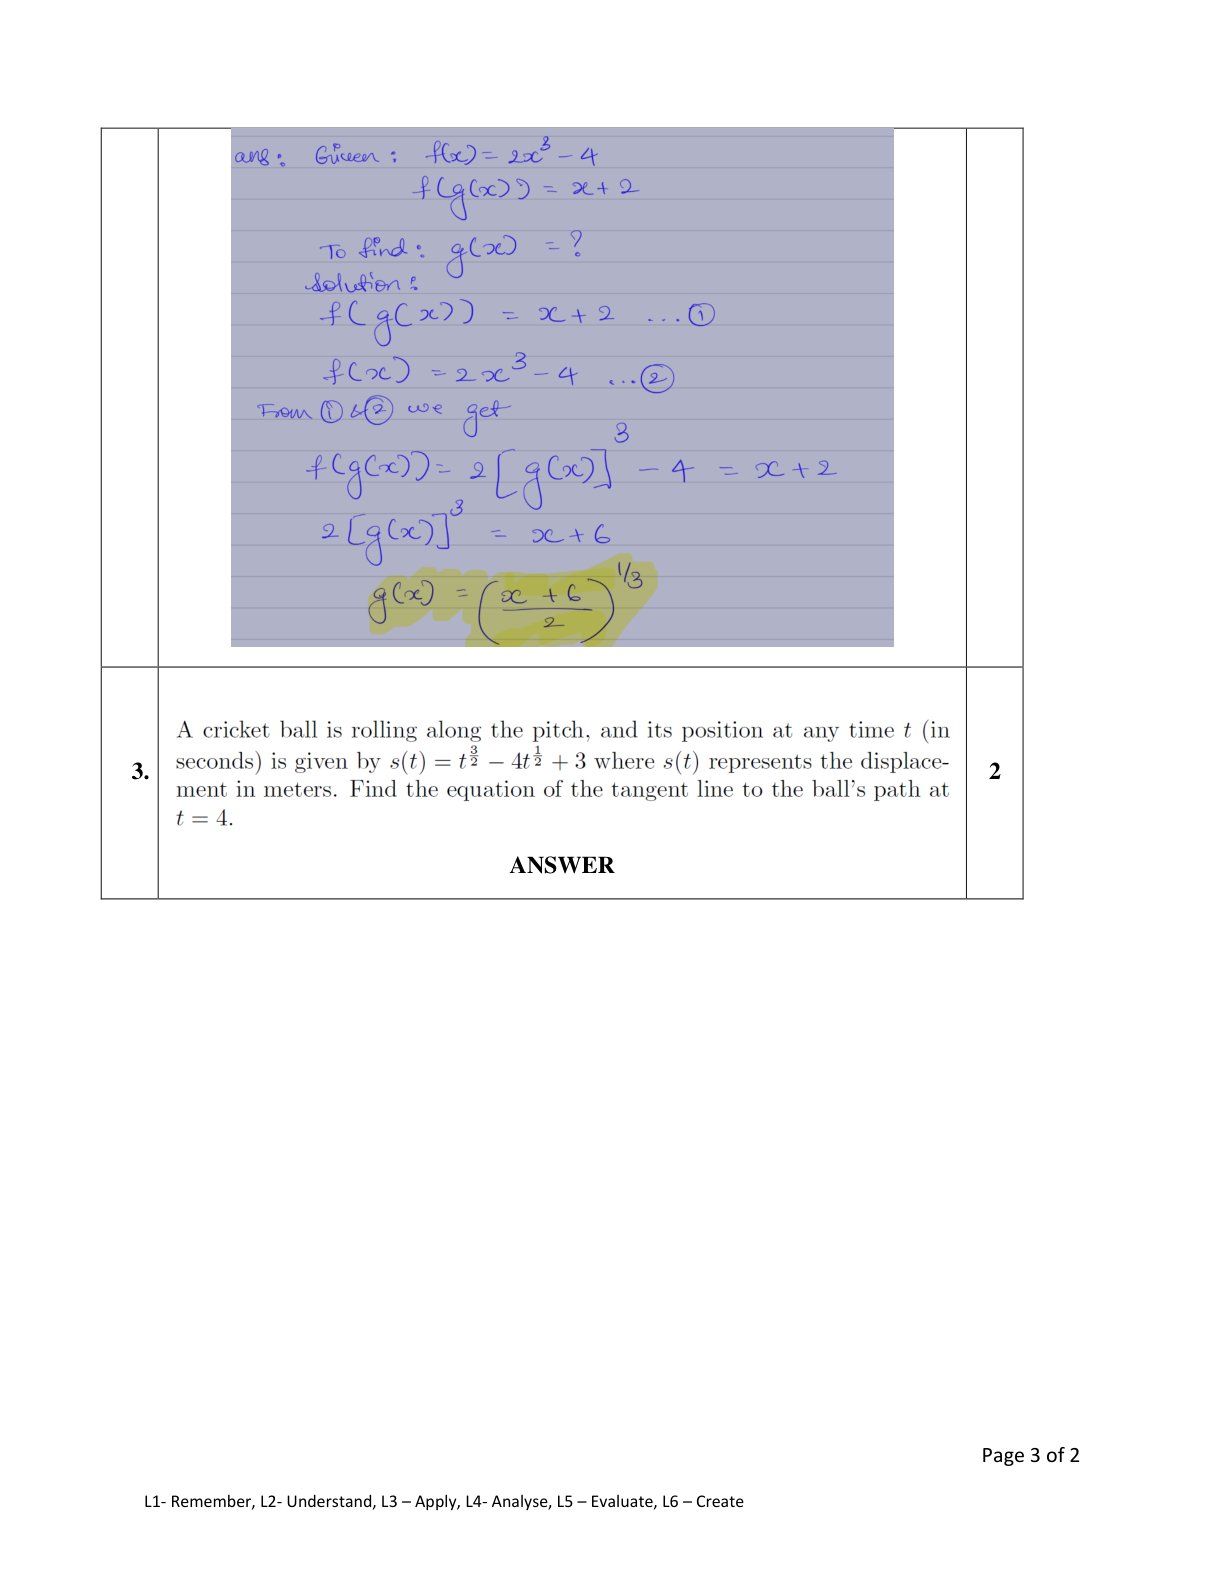 ans: Given: f(x) = 2x³ - 4
f(g(x)) = x + 2
To find: g(x) = ?
Solution:
f(g(x)) = x + 2 ...①
f(x) = 2x³ - 4 ...②
From ① & ② we get
f(g(x)) = 2[g(x)]³ - 4 = x + 2
2[g(x)]³ = x + 6
g(x) = (x + 6 / 2)^1/3
A cricket ball is rolling along the pitch, and its position at any time t (in
3. seconds) is given by s(t) = t^3/2 − 4t^1/2 + 3 where s(t) represents the displace- 2
ment in meters. Find the equation of the tangent line to the ball's path at
t = 4.
ANSWER
Page 3 of 2
L1- Remember, L2- Understand, L3 – Apply, L4- Analyse, L5 – Evaluate, L6 – Create